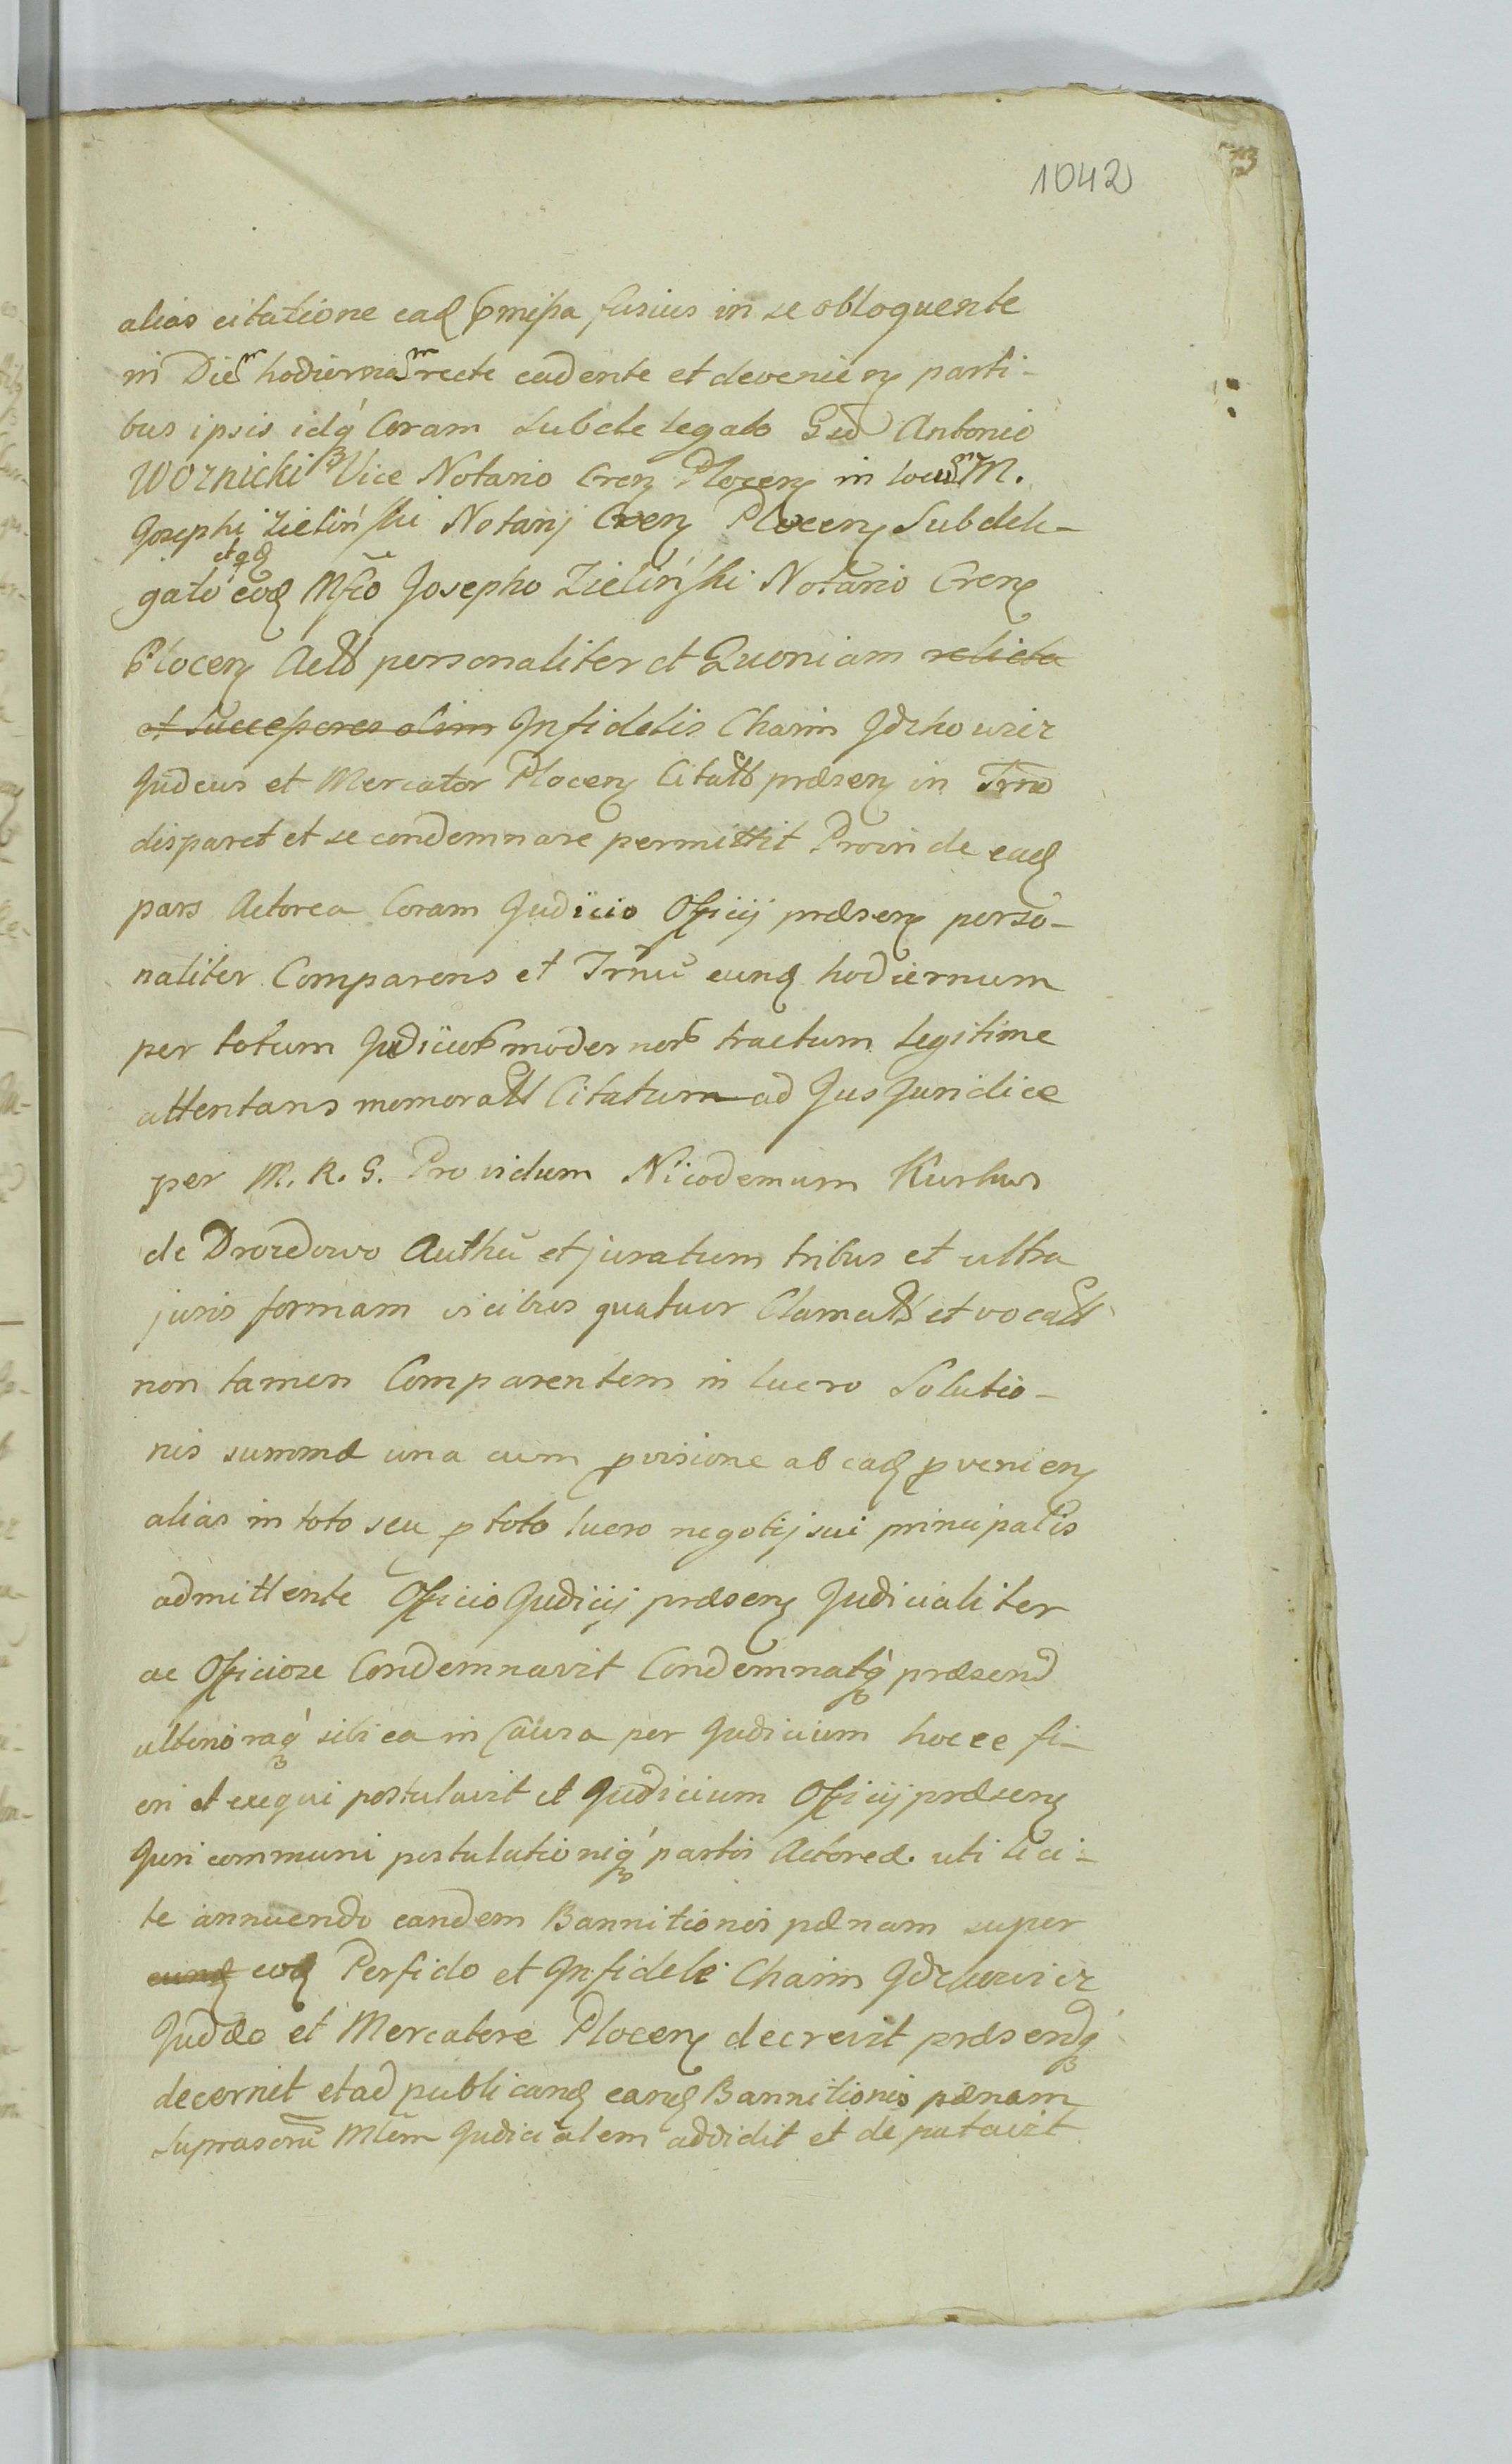 1042
alias citatione eaḋ pmissa fusius in se obloquente
in Diem hodiernam recte cadente et devenien parti-
bus ipsis idq́ Coram Subdelegato Gso Antonio
Woznicki Vice Notario Cren Plocen in locum M.
Josephi Zieliński Notarij Cren Plocen Subdele-
et qd
gato eod Mfco Josepho Zieliński Notario Cren
Plocen Actt personaliter et Quoniam relicta
et Successores olim Infidelis Chaim Jdzkowicz
Judeus et Mercator Plocen Citatt præsen in Trno
disparet et se condemnare permittit Proinde ead
pars Actorea Coram Judicio Officij præsen perso-
naliter Comparens et Trnū eund hodiernum
per totum Judicior modernor tractum legitime
attentans memoratt Citatum ad Jus Juridice
per M. R. G. Providum Nicodemum Kurkus
de Drozdowo Authū et juratum tribus et ultra
juris formam vicibus quatuor Clamatt et vocatt
non tamen Comparentem in lucro Solutio-
nis summæ una cum pvisione ab ead pvenien
alias in toto seu p toto lucro negotij sui principalis
admittente Officio Judicij præsen Judicialiter
ac Officiose Condemnavit Condemnatq́ præsend
ulterioraq́ sibi ea in Causa per Judicium hocce fi-
eri et exequi postulavit et Judicium Officij præsen
Juri communi postulationiq́ partis Actoreæ uti lici-
te annuendo eandem Bannitionis pænam super
eund eod Perfido et Infideli Chaim Jdzkowicz
Judæo et Mercatore Plocen decrevit præsendq́
decernit et ad publicand eand Bannitionis pænam
Suprascrū Mlem Judicialem addidit et deputavit